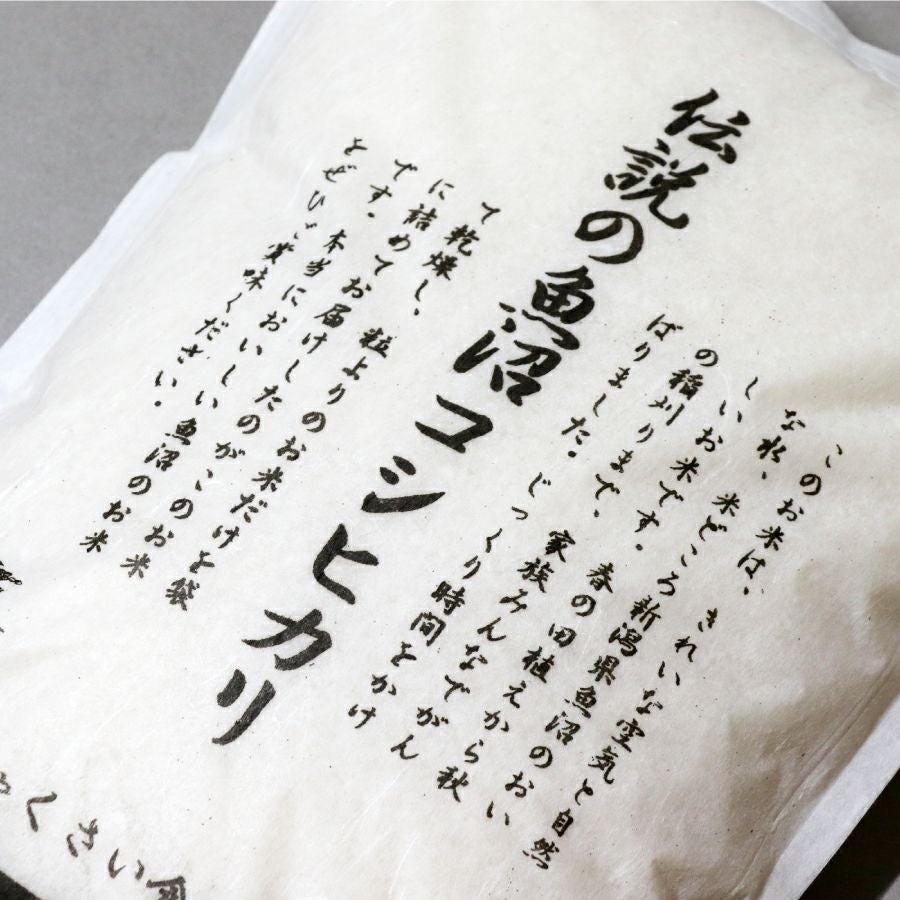 このお米は、きれいな空気と自然
な水、米どころ新潟県魚沼のおい
しいお米です。春の田植えから秋
の稲刈りまで、家族みんなでがん
ばりました。じっくり時間をかけ
伝説の魚沼コシヒカリ
て乾燥し、粒よりのお米だけを袋
に詰めてお届けしたのがこのお米
です。本当においしい魚沼のお米
をぜひご賞味ください。
くさい